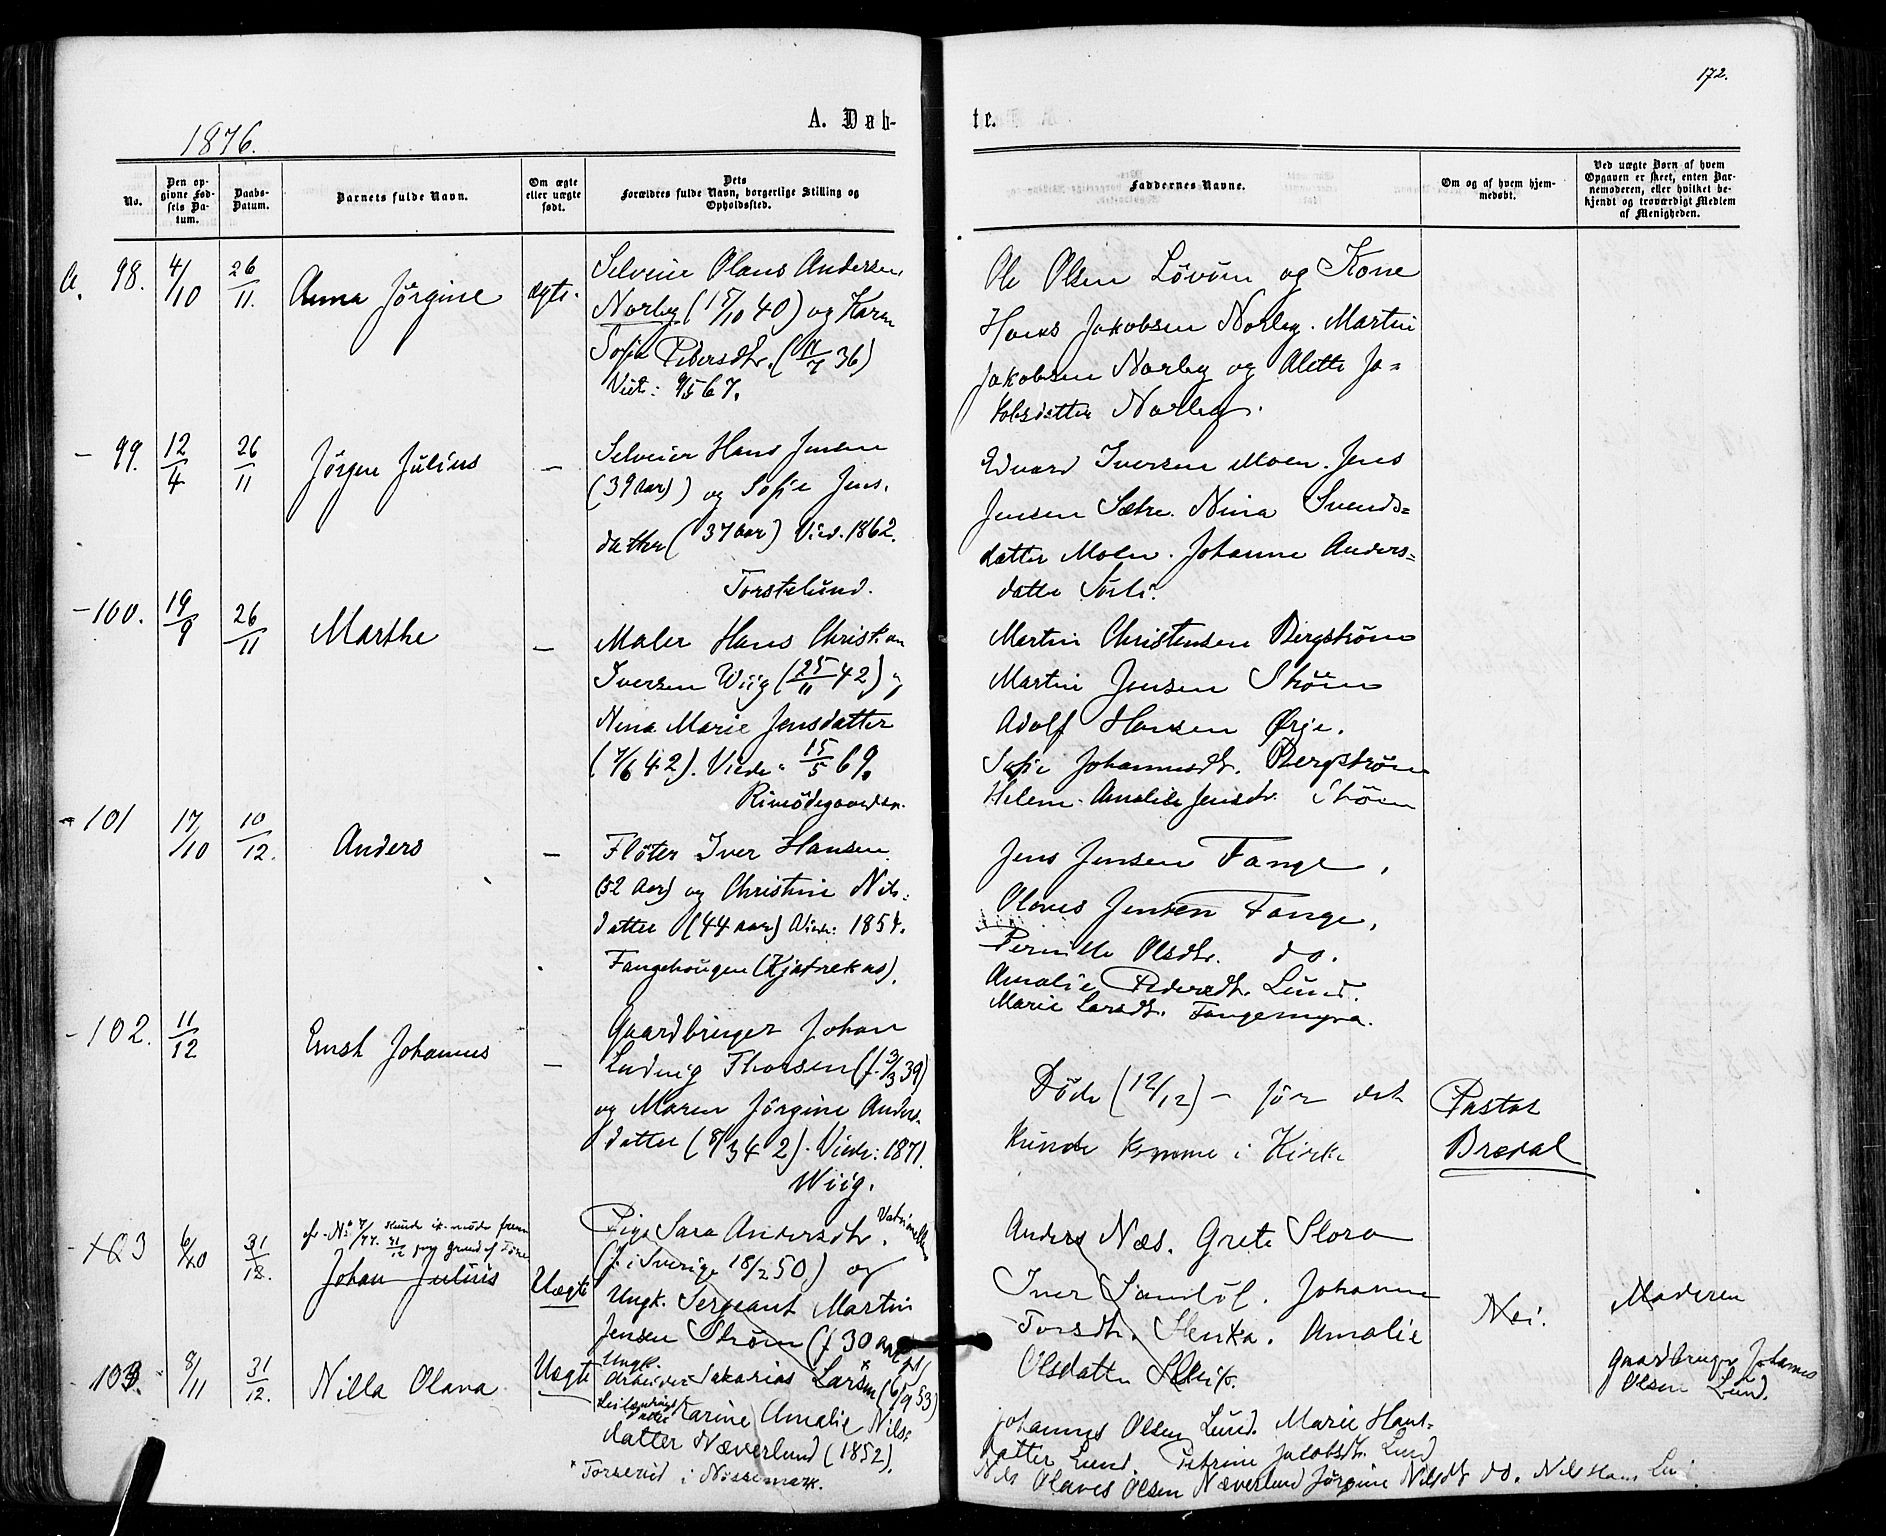 172.
A. Døb-
te.
1876.
No.
Den op-
givne Fød-
sels Da-
tum.
Daabs-
Datum.
Barnets fulde Navn.
Om ægte
eller uægte
født.
Dets
Forældres fulde Navn, borgerlige Stilling og
Opholdssted.
Faddernes Navne.
Om og af hvem hjem-
medøbt.
Ved uægte Børn af hvem
Opgaven er skeet, enten Bar-
nemoderen, eller hvilket be-
kjendt og troværdigt Medlem
af Menigheden.
98. 4/10 26/11. Anna Jørgine ægte.
Selveier Olaus Andersen
Norby (15/10 40) og Karen
Sofie Pedersdtr. (11/7 36)
Viede: 9/5 67.
Ole Olsen Løvun og Kone
Hans Jakobsen Norby. Martin
Jakobsen Norby og Alette Ja-
kobsdatter Norby.
- 99. 12/4 26/11 Jörgen Julius -
Selveier Hans Jensen
(39 aar) og Sofie Jens.
datter (37 aar) Vied. 1862.
Torstelund.
Edvard Iversen Moen. Jens
Jensen Sætre. Nina Svends-
datter Moen. Johanne Anders-
datter Sørli.
- 100. 19/9 26/11 Marthe -
Maler Hans Christian
Iversen Wiig (25/11 42) og
Nina Marie Jensdatter
(7/6 42). Viede 15/5 69.
Rimødegaarden.
Martin Christensen Bergstrøm
Martin Jensen Strøm
Adolf Hansen Ørje.
Sofie Johannesdtr. Bergstrøm
Helene Amalie Jensdtr. Strøm
- 101 17/10 10/12. Anders -
Fløter Iver Hansen
(52 Aar) og Christine Nils-
datter (44 aar) Viede: 1854.
Fangehougen (Kjatrekas).
Jens Jensen Fange,
Olaves Jensen Fange,
Pernille Olsdtr. do.
Amalie Pedersdtr. Lund.
Marie Larsdtr. Fangemyra.
- 102. 11/12 Ernst Johannes -
Gaardbruger Johan
Ludvig Thorsen (f. 3/3 39)
og Maren Jörgine Anders-
datter (8/3 42). Viede: 1871.
Wiig.
Døde (12/12) - før det
kunde komme i Kirke
Pastor
Bredal
- 103 6/10 31/12. Johan Julius Uægte
Pige Sara Andersdtr.
(f. i Sverige 18/2 50) og
Ungk. Sergeant Martin
Jensen Strøm (f 30 aar
Anders Næs. Grete Slora
Iver Sandtøl. Johanne
Torsdtr. Slenka. Amalie
Olsdatter
Nei.
Moderen
103. 8/11 31/12. Nilla Olava Uægte
Ungk.
Arbeider Sakarias Larsen* (6/9 53)
Karine Amalie Nils-
datter Næverlund (1852).
* Torserud i Nössemark.
Johannes Olsen Lund. Marie Hans-
datter Lund. Petrine Jacobsdtr. Lund
Nils Olaves Olsen Næverlund Jørgine Nilsdtr do. Nils Hans
Gaardbruger Johannes
Olsen Lund.